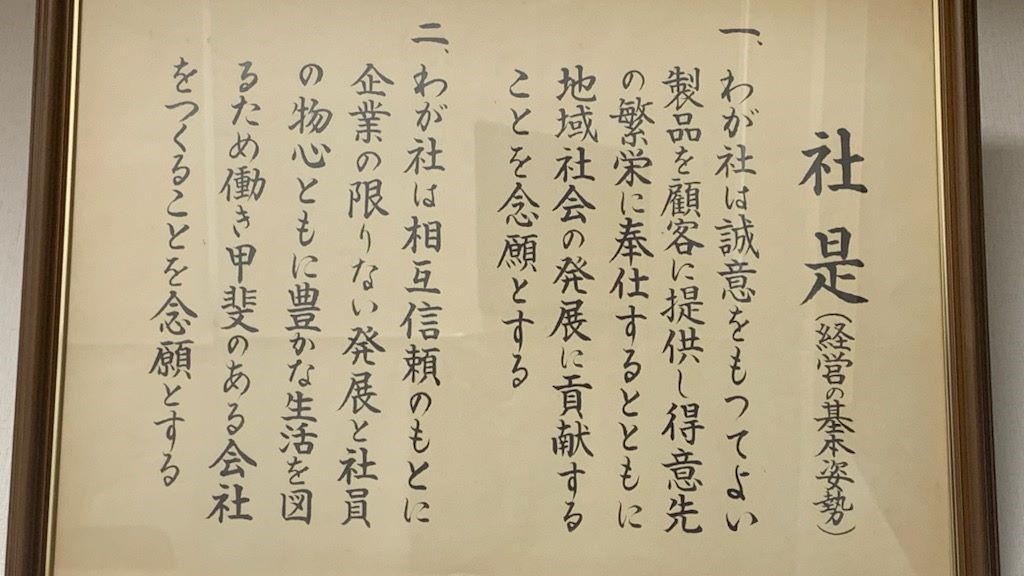 社是(経営の基本姿勢)
一、わが社は誠意をもつてよい
製品を顧客に提供し得意先
の繁栄に奉仕するとともに
地域社会の発展に貢献する
ことを念願とする
二、わが社は相互信頼のもとに
企業の限りない発展と社員
の物心ともに豊かな生活を図
るため働き甲斐のある会社
をつくることを念願とする